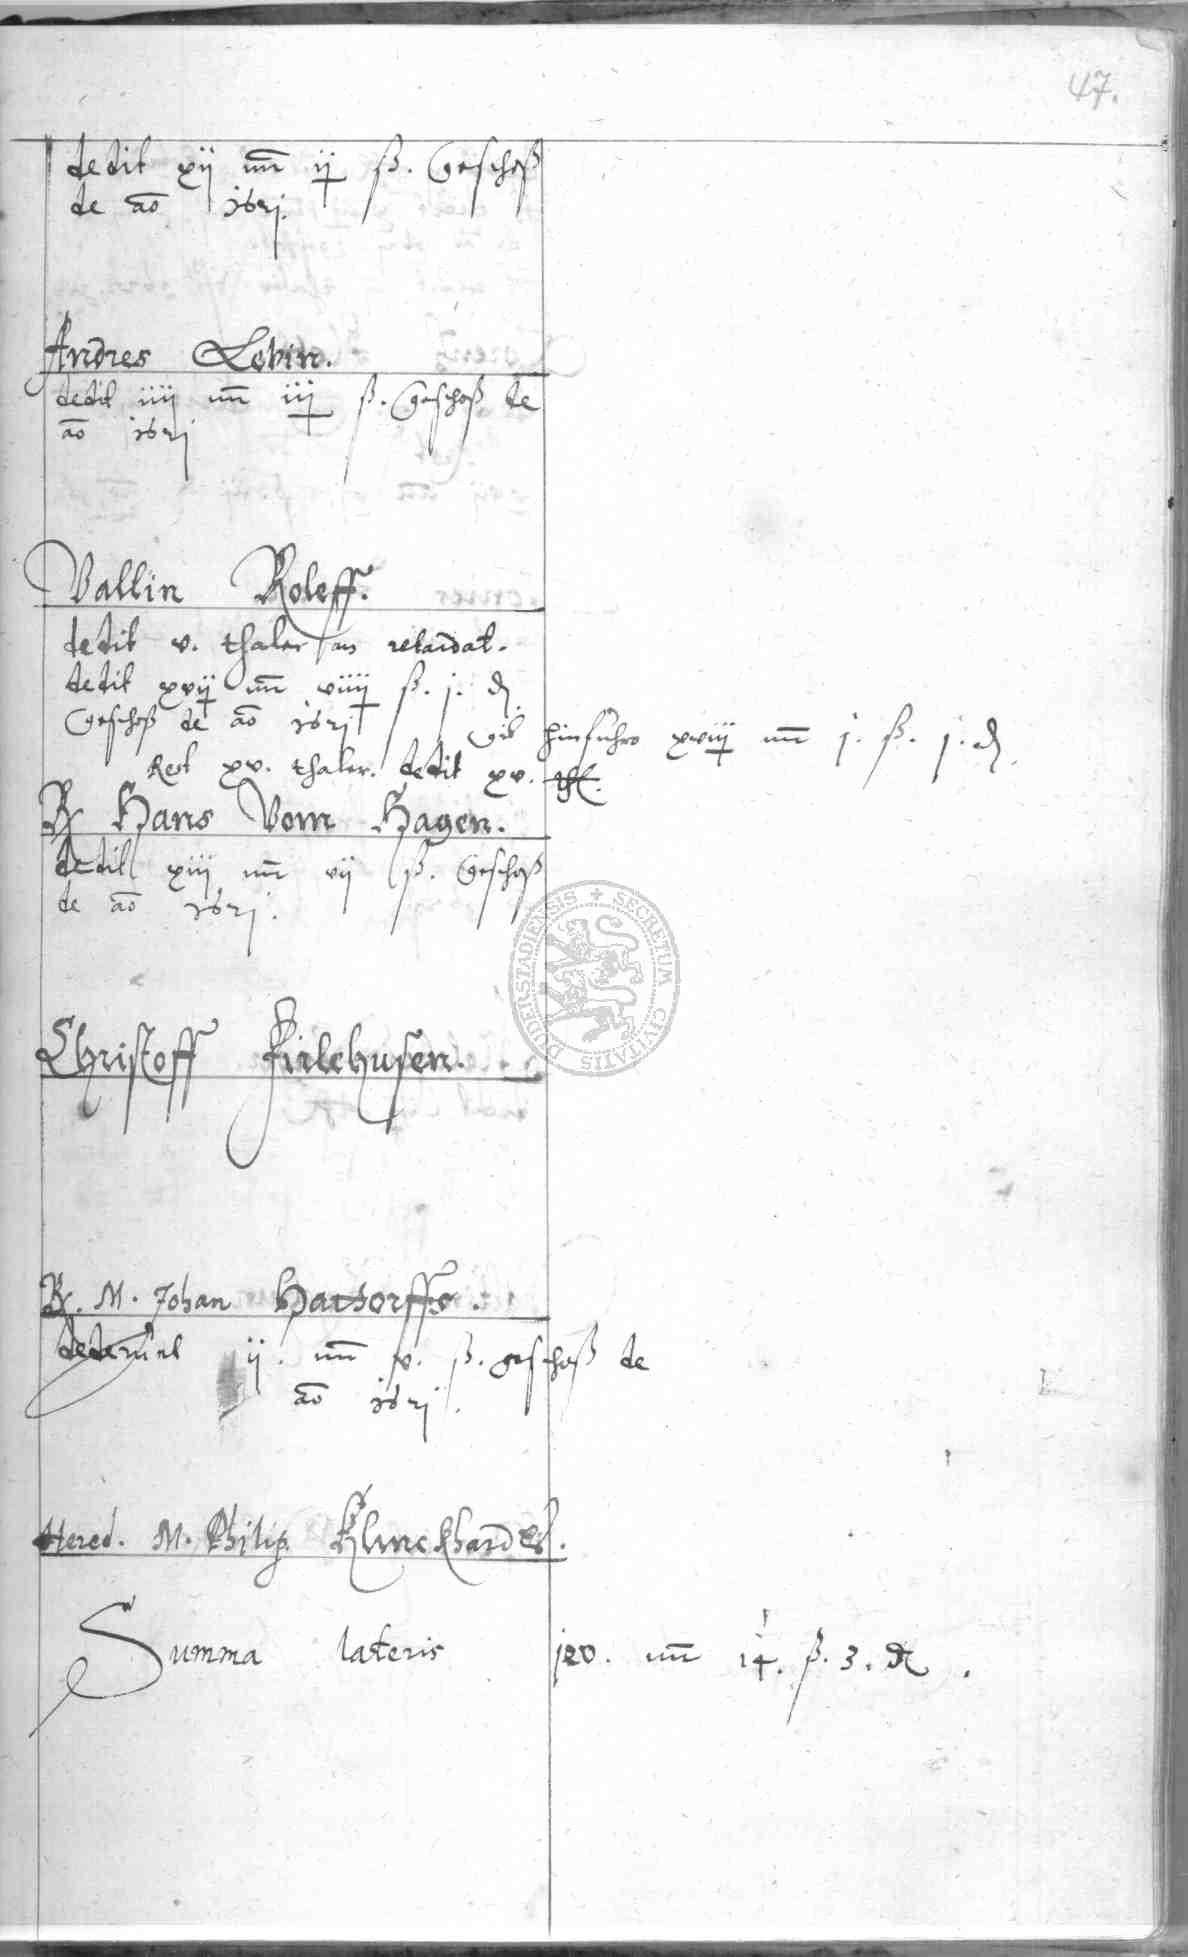 47.
dedit xij mr ij ß. Geschoß
de ao 1621.
Andres Levin.
dedit iiij mr iij ß. Geschoß de
ao 1621
Valtin Roleff.
dedit v. thaler an retardat.
dedit xvij mr viiij ß. j. d
Geschoß de ao 1621 gib hinfuhro xviij mr j. ß. j. d.
Rest xv. thaler. dedit xv. thl.
R Hans Vom Hagen.
dedit xiij mr vij ß. Geschoß
de ao 1621.
Christoff Firlehusen.
R. M. Johan Hattorffs.
dederunt ij. mr v. ß. geschoß de
ao 1621.
Hered. M. Philip Klinckhardt.
SECRETUM CIVITATIS DUDERSTADIENSIS
Summa lateris 120. mr 14. ß. 3. d.